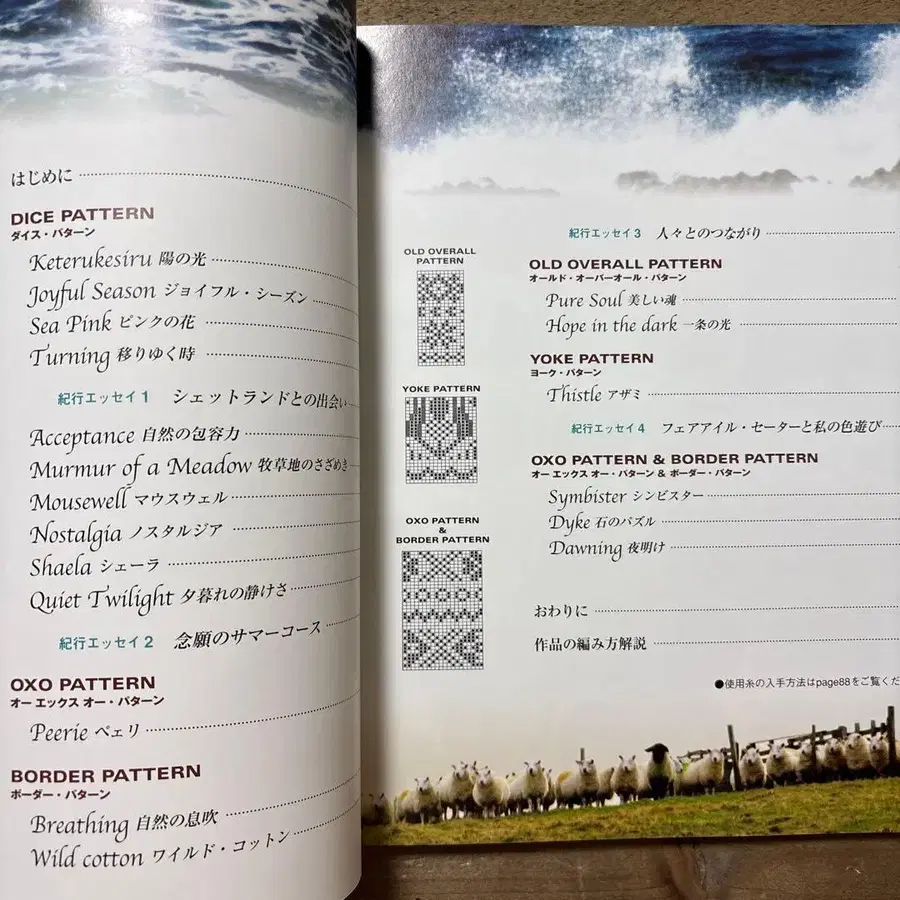 はじめに
DICE PATTERN
ダイス・パターン
Keterukesiru 陽の光
Joyful Season ジョイフル・シーズン
Sea Pink ピンクの花
Turning 移りゆく時
紀行エッセイ 1 シェットランドとの出会い
Acceptance 自然の包容力
Murmur of a Meadow 牧草地のさざめき
Mousewell マウスウェル
Nostalgia ノスタルジア
Shaela シェーラ
Quiet Twilight 夕暮れの静けさ
紀行エッセイ 2 念願のサマーコース
OXO PATTERN
オー エックス オー・パターン
Peerie ペェリ
BORDER PATTERN
ボーダー・パターン
Breathing 自然の息吹
Wild cotton ワイルド・コットン
OLD OVERALL
PATTERN
YOKE PATTERN
OXO PATTERN
&
BORDER PATTERN
紀行エッセイ 3 人々とのつながり
OLD OVERALL PATTERN
オールド・オーバーオール・パターン
Pure Soul 美しい魂
Hope in the dark 一条の光
YOKE PATTERN
ヨーク・パターン
Thistle アザミ
紀行エッセイ 4 フェアアイル・セーターと私の色遊び
OXO PATTERN & BORDER PATTERN
オー エックス オー・パターン & ボーダー・パターン
Symbister シンビスター
Dyke 石のパズル
Dawning 夜明け
おわりに
作品の編み方解説
●使用糸の入手方法はpage88をご覧くだ